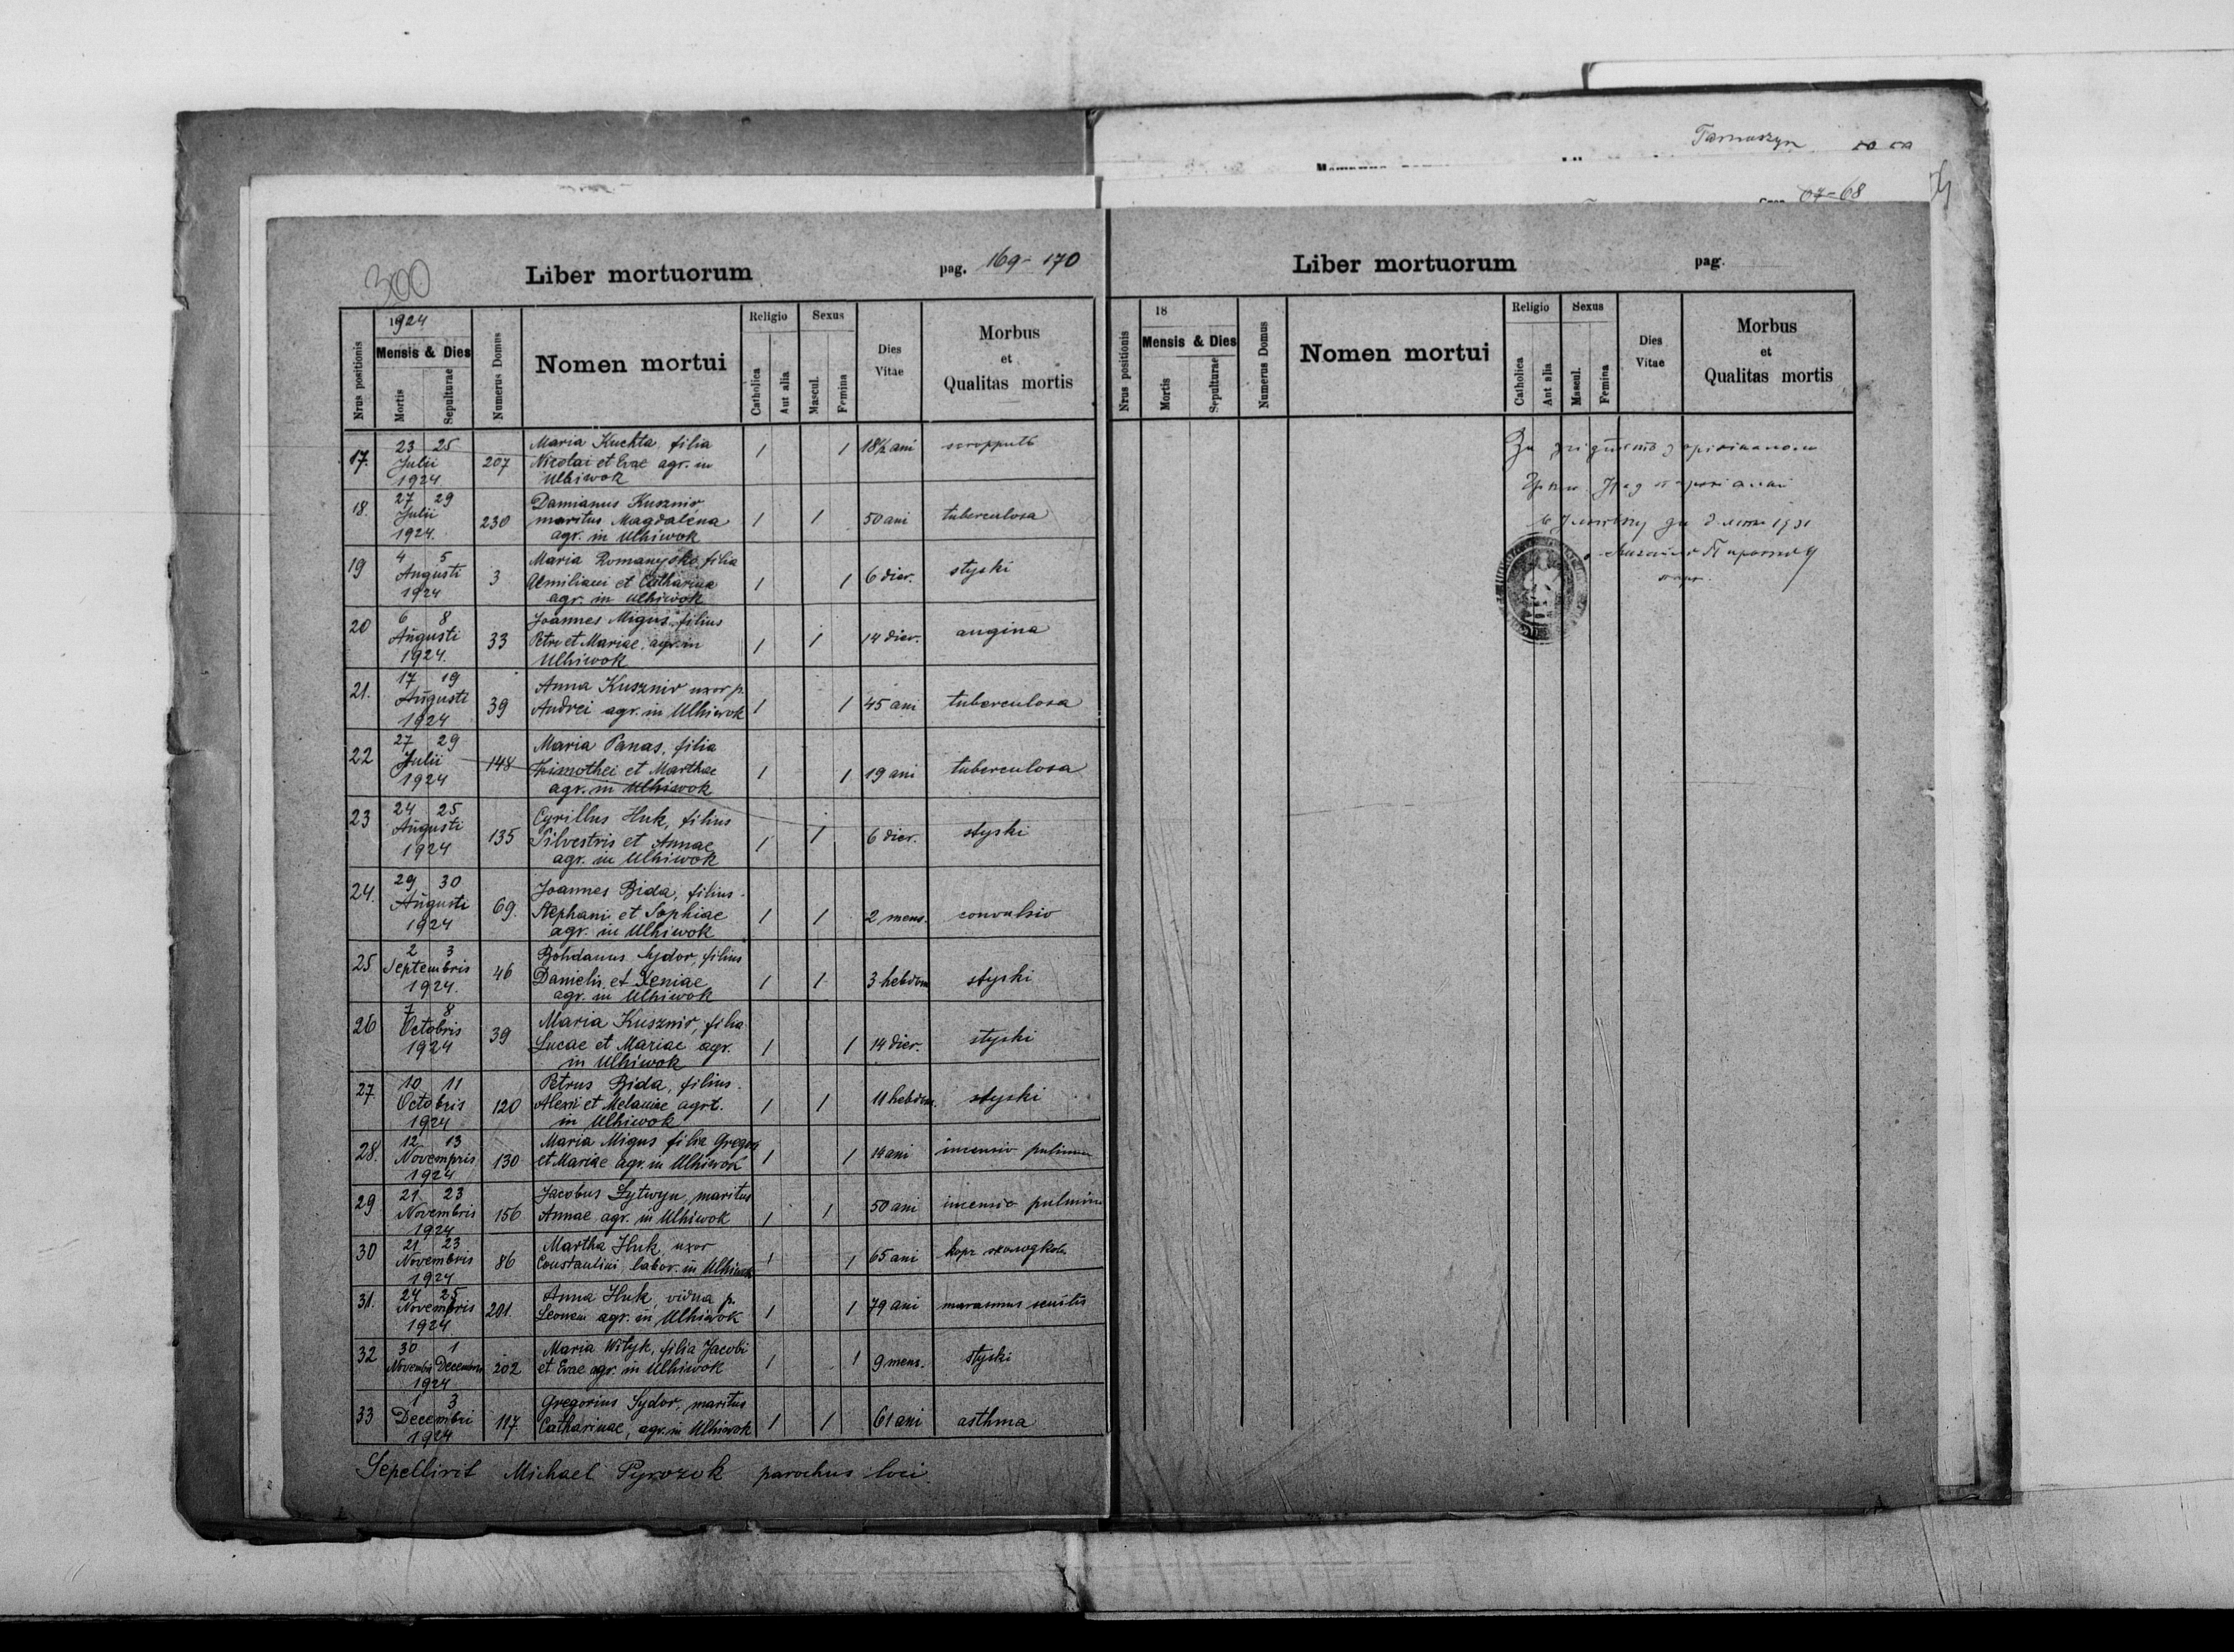 Tarnoszyn
67-68
300
Liber mortuorum
pag. 169-170
Nrus positionis
1924
Mensis & Dies
Mortis
Sepulturae
Numerus Domus
Nomen mortui
Religio
Catholica
Aut alia
Sexus
Mascul.
Femina
Dies Vitae
Morbus
et
Qualitas mortis
17. 23 25 Maria Kuchta, filia 1 1 18½ ani
Julii 207 Nicolai et Evae agr. in
1924. Ulhiwok
18. 27 29 Damianus Kusznir
Julii 230 maritus Magdalena 1 1 50 ani tuberculosa
1924. agr. in Ulhiwok
19 4 5 Maria Romanysko filia
Augusti 3 Aemiliani et Catharina 1 1 6 dier. styski
1924 agr. in Ulhiwok
20 6 8 Joannes Migus filius
Augusti 33 Petri et Mariae agr. in 1 1 14 dier. angina
1924. Ulhiwok
21. 17 19 Anna Kusznir uxor p.
Augusti 39 Andrei agr. in Ulhiwok 1 1 45 ani tuberculosa
1924
22 27 29 Maria Panas, filia
Julii 148 Timothei et Marthae 1 1 19 ani tuberculosa
1924 agr. in Ulhiwok
23 24 25 Cyrillus Huk, filius
Augusti 135 Silvestris et Annae 1 1 6 dier. styski
1924 agr. in Ulhiwok
24. 29 30 Joannes Bida, filius
Augusti 69. Stephani et Sophiae 1 1 2 mens. convulsio
1924 agr. in Ulhiwok
25 2 3 Bohdanus Sydor, filius
Septembris 46 Danielis et Xeniae 1 1 3 hebdom styski
1924. agr. in Ulhiwok
26 7 8 Maria Kusznir, filia
Octobris 39 Lucae et Mariae agr. 1 1 14 dier. styski
1924 in Ulhiwok
27 10 11 Petrus Bida, filius
Octobris 120 Alexii et Melaniae agr. 1 1 11 hebdom. styski
1924 in Ulhiwok
28. 12 13 Maria Migus filia Gregor
Novempris 130 et Mariae agr. in Ulhiwok 1 1 ani incensio pulmin
1924
29 21 23 Jacobus Lytwyn, maritus
Novembris 156 Annae agr. in Ulhiwok 1 1 50 ani incensio pulmin
1924
30 21 23 Martha Huk, uxor
Novembris 86 Constantini labor. in Ulhiwok 1 1 65 ani
1924
31. 24 25 Anna Huk, vidua p.
Novembris 201. Leonem agr. in Ulhiwok 1 1 79 ani marasmus senilis
1924
32 30 1 Maria Wityk, filia Jacobi
Novembri Decembris 202 et Evae agr. in Ulhiwok 1 1 9 mens. styski
1924
33 1 3 Gregorius Sydor, maritus
Decembri 117. Catharinae, agr. in Ulhiwok 1 1 61 ani asthma
1924
Sepellivit Michael Pyrozok parochus loci
Liber mortuorum
pag.
Nrus positionis
18
Mensis & Dies
Mortis
Sepulturae
Numerus Domus
Nomen mortui
Religio
Catholica
Aut alia
Sexus
Mascul.
Femina
Dies Vitae
Morbus
et
Qualitas mortis